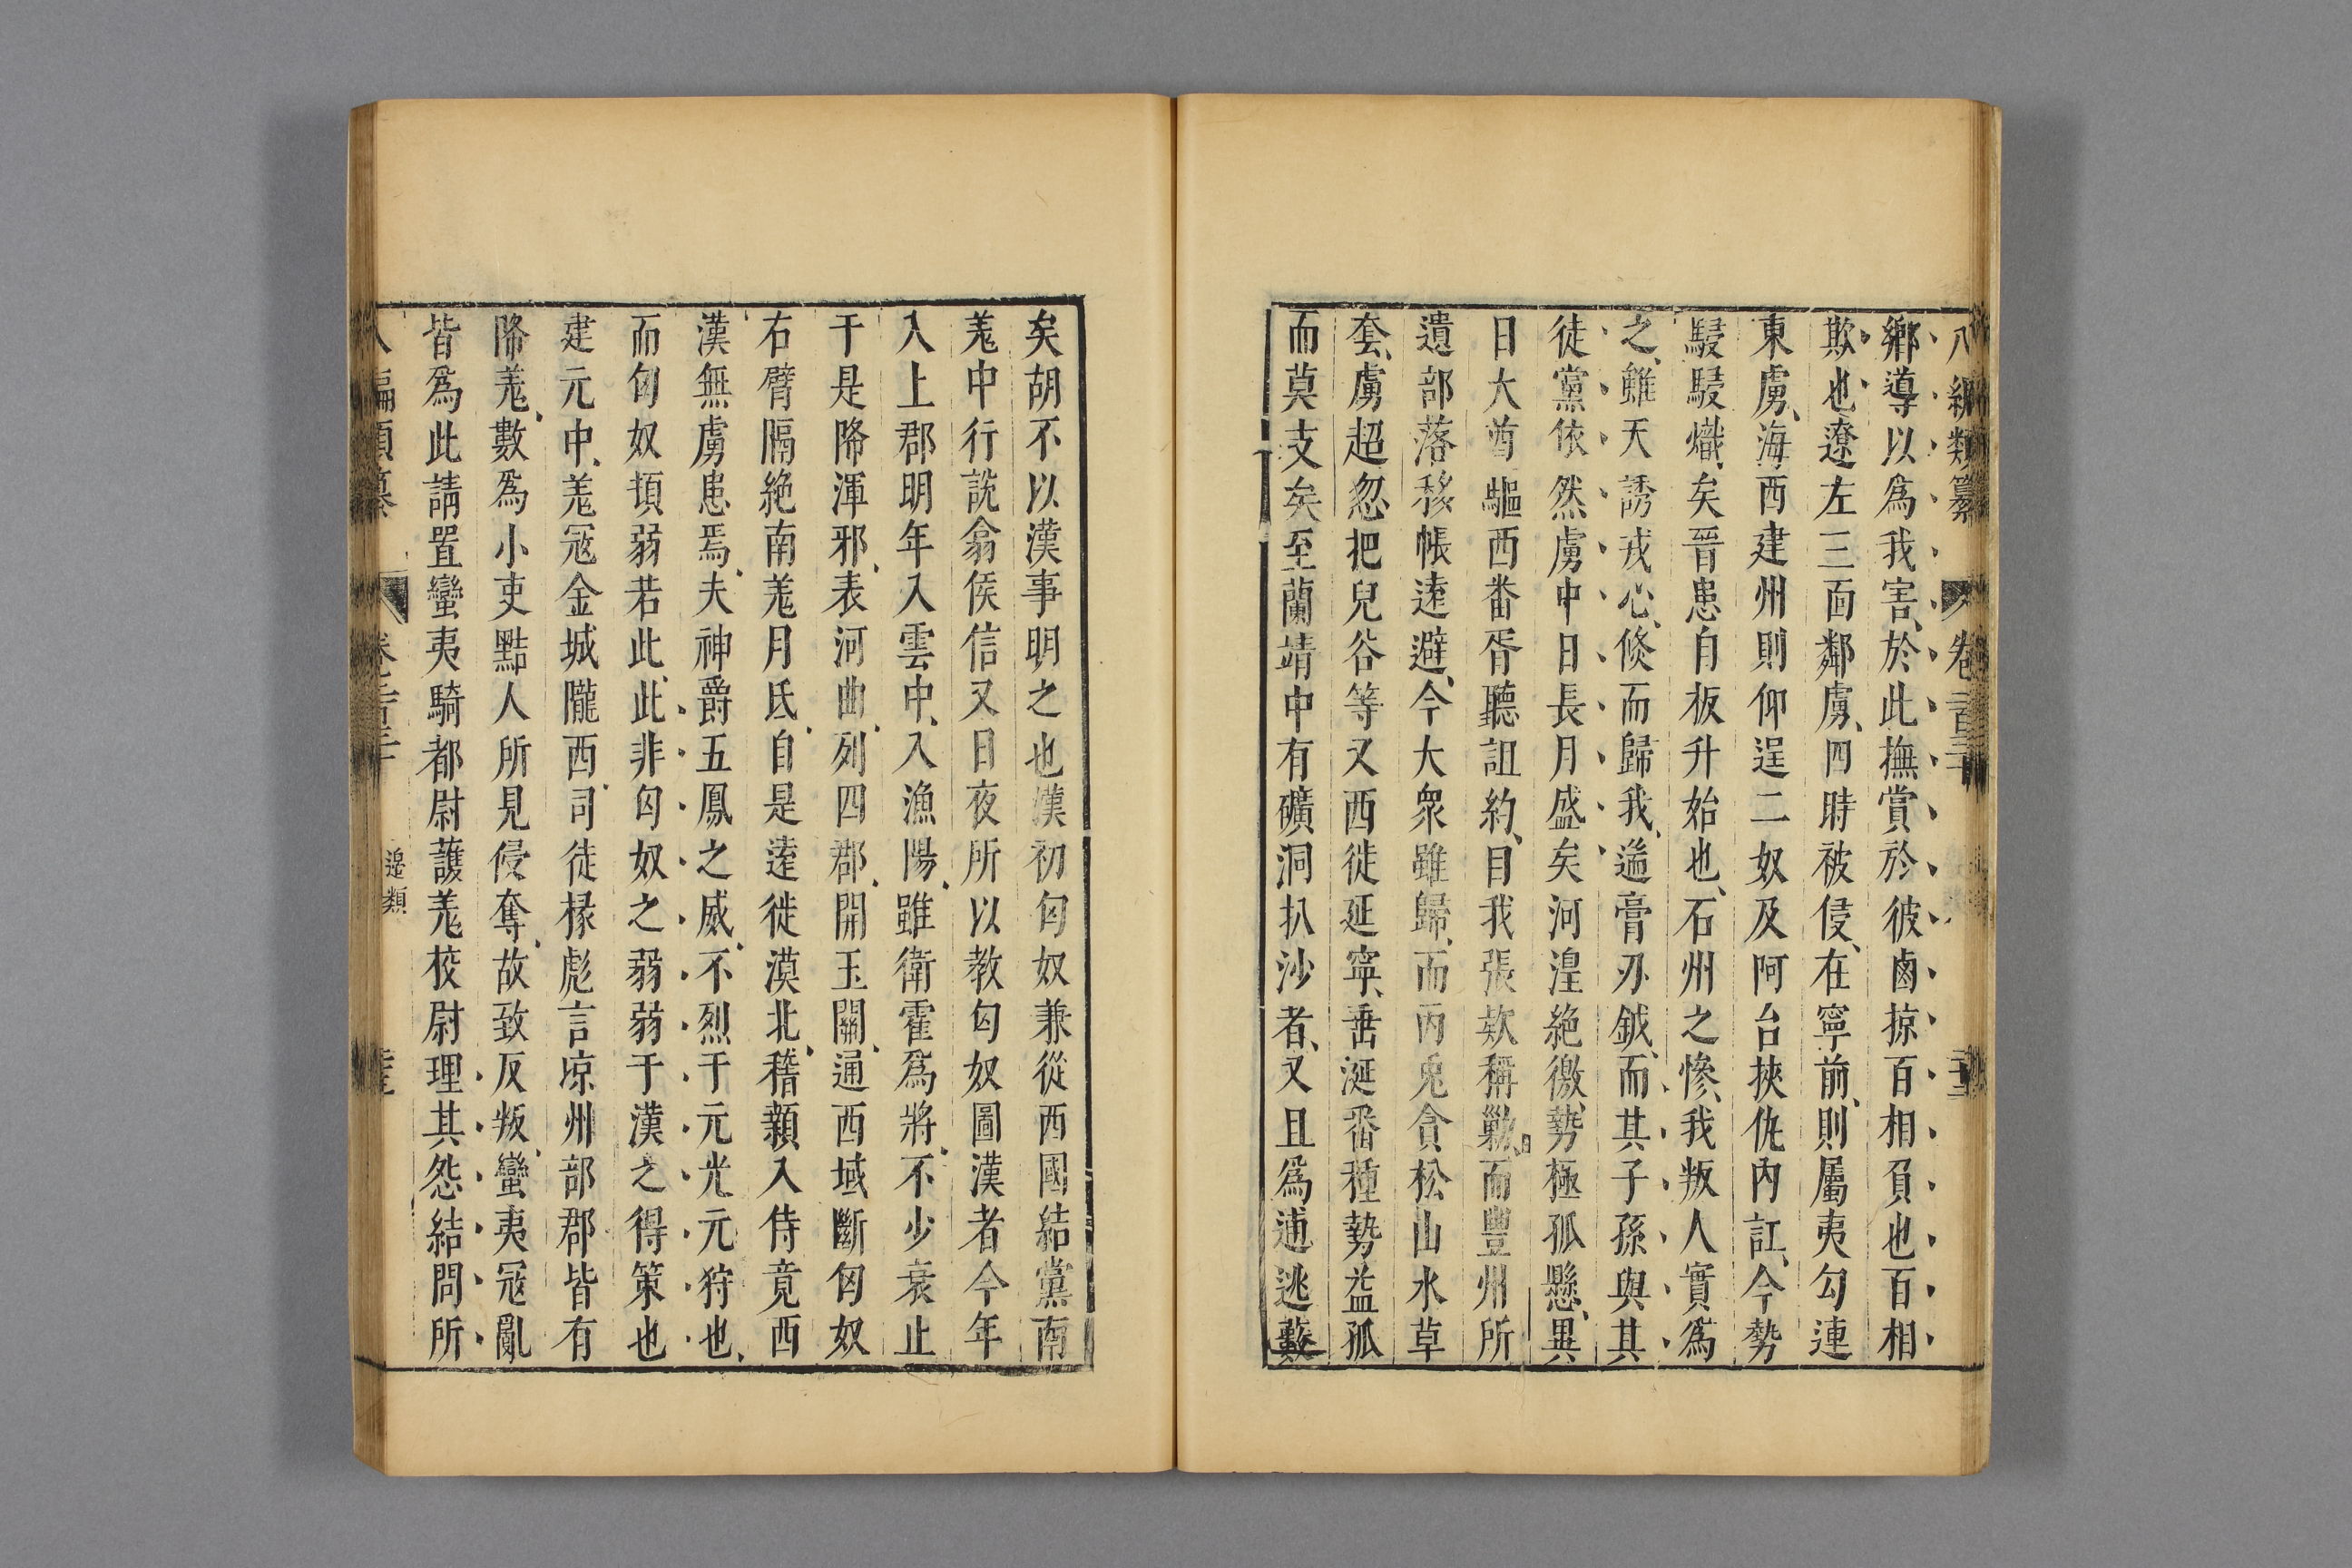 八編類纂 卷 二十三
鄉導以爲我害於此撫賞於彼鹵掠百相負也百相
欺也遼左三面鄰虜四時被侵在寧前則屬夷勾連
東虜海西建州則仰逞二奴及阿台挾仇內訌今勢
駸駸熾矣晉患自板升始也石州之慘我叛人實爲
之雖天誘戎心倐而歸我遄膏刃鉞而其子孫與其
徒黨依然虜中日長月盛矣河湟絶徼勢極孤懸異
日大酋驅西畨胥聽詛約目我張欸稱勦而豐州所
遺部落移帳遠避今大衆雖歸而丙兎貪松山水草
套虜超忽把兒谷等又西徙延寧垂涎番種勢益孤
而莫支矣至蘭靖中有礦洞扒沙者又且爲逋逃藪
矣胡不以漢事明之也漢初匈奴兼從西國結黨南
羌中行說翕侯信又日夜所以教匈奴圖漢者今年
入上郡明年入雲中入漁陽雖衛霍爲將不少衰止
于是降渾邪表河曲列四郡開玉關通西域斷匈奴
右臂隔絶南羌月氏自是遠徙漠北稽顙入侍竟西
漢無虜患焉夫神爵五鳳之威不烈于元光元狩也
而匈奴頓弱若此此非匈奴之弱弱于漢之得策也
建元中羌冦金城隴西司徒掾彪言凉州部郡皆有
降羌數爲小吏黠人所見侵奪故致反叛蠻夷冦亂
皆爲此請置蠻夷騎都尉護羌校尉理其怨結問所
邊類